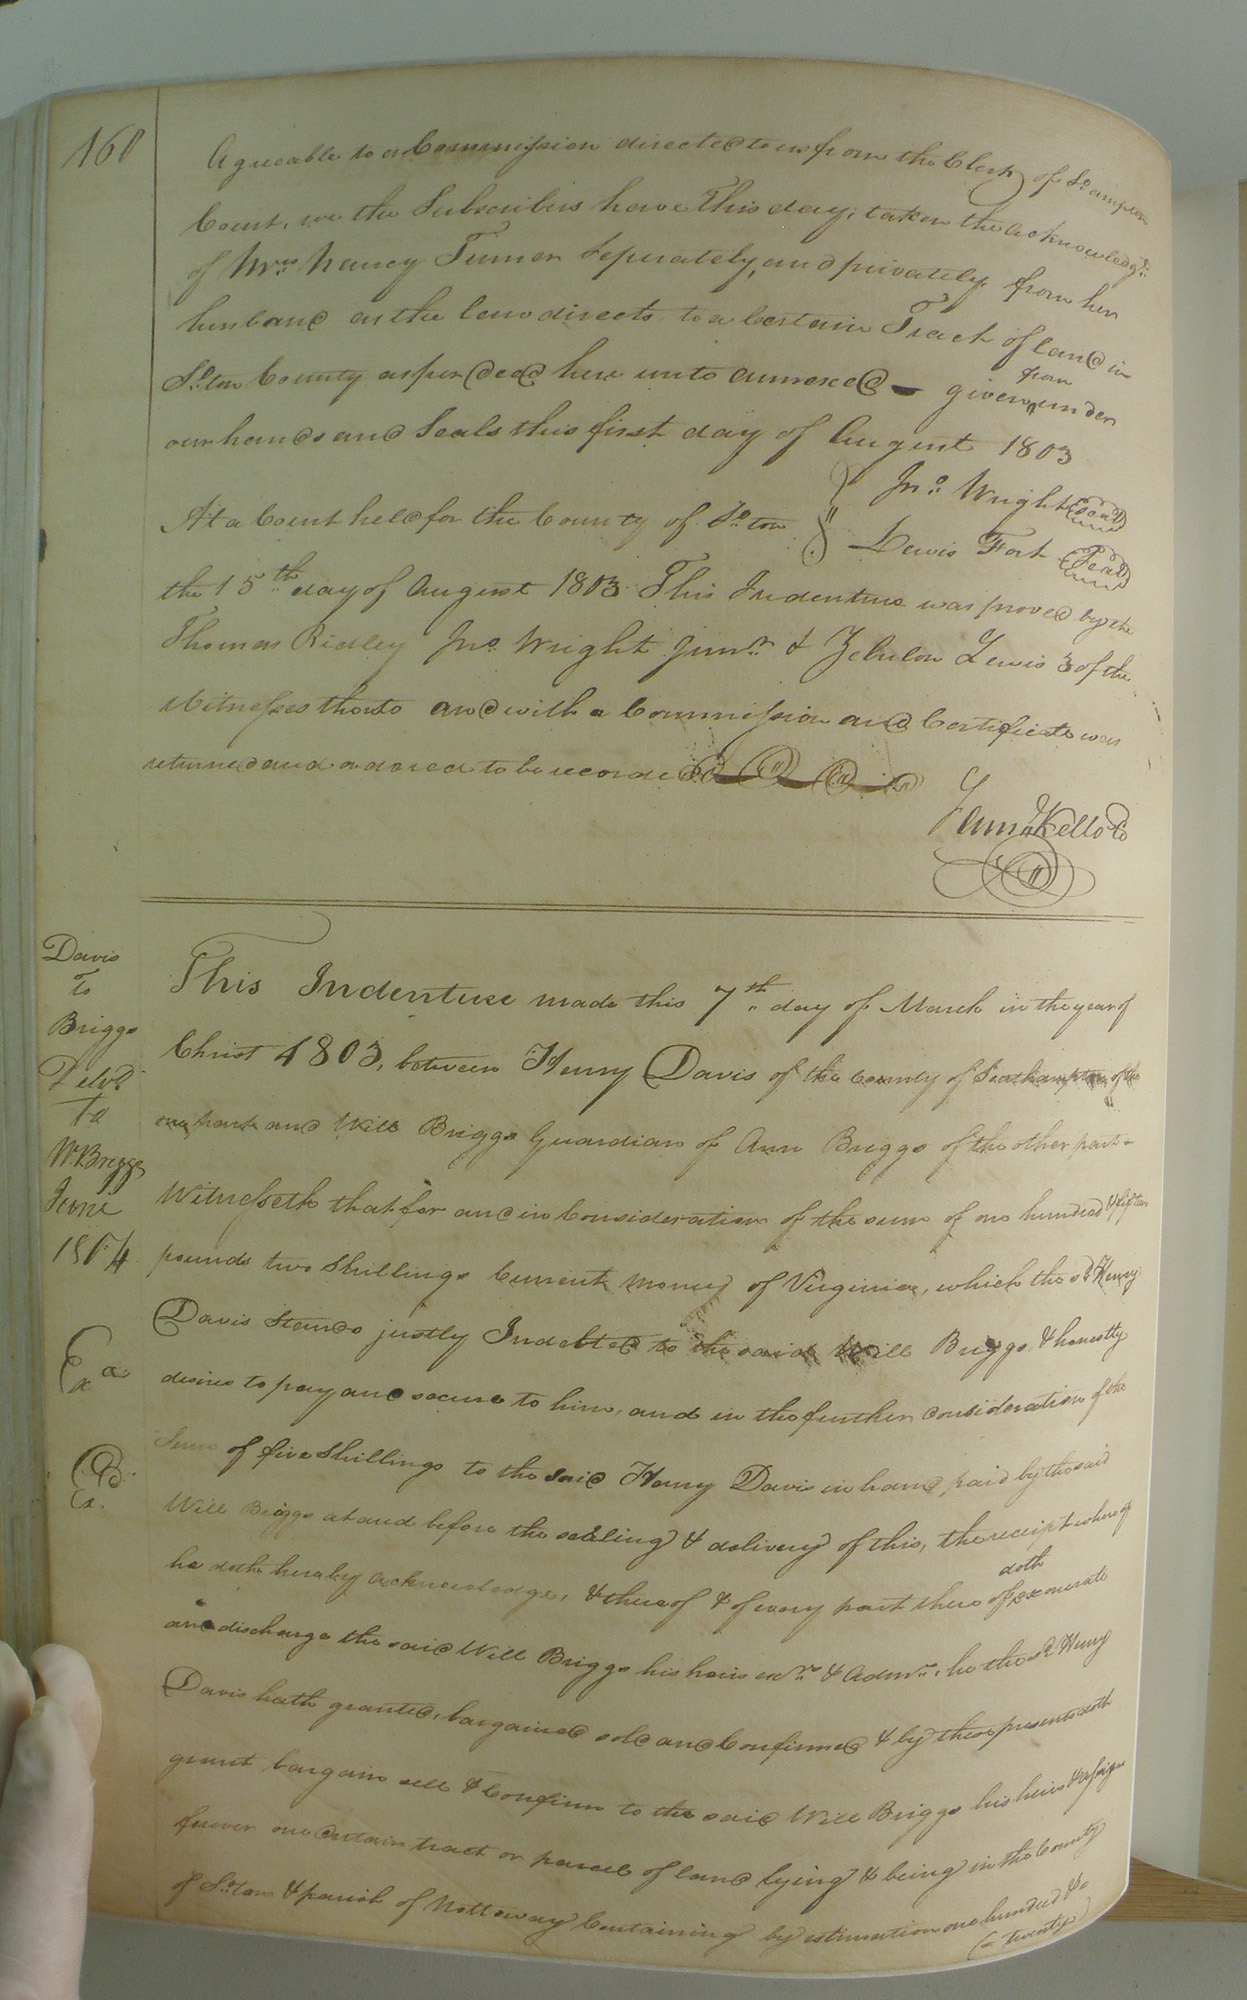 160
Agreeable to a Commission directed to us from the Clerk of So.ampton
Court, we the Subscribers have This day, taken the acknowledgt.
of Mrs. Nancy Turner Seperately, and privately from her
husband as the law directs to a Certain Track of land in
So.ton County as per deed here unto annexed – given from under
our hands and Seals this first day of August 1803
Jno. Wright Seal
At a Court held for the County of So.ton
Lewis Fort Seal
the 15th. day of August 1803 This Indenture was proved by the
Thomas Ridley Jno. Wright Junr. & Zebulon Lewis 3 of the
Witnesses thereto and with a Commission and Certificate was
returned and ordered to be recorded
Saml. Kello Co
Davis
To
Briggs
Delvd
To
W. Briggs
June
1804
Exa
This Indenture made this 7th. day of March in the year of
Christ 1803, between Henry Davis of the County of Southampton of the
one part and Will Briggs Guardian of Ann Briggs of the other part
Witnesseth that for and in Consideration of the sum of one hundred & fifteen
pounds two Shillings Current money of Virginia, which the sd. Henry
Davis Stands justly Indebted to the said Will Briggs & honestly
desires to pay and secure to him, and in the further consideration of the
Sum of five Shillings to the said Henry Davis in hand paid by the said
Will Briggs at and before the sealing & delivery of this, the receipt whereof
he doth hereby acknowledge, & thereof & of every part there of doth exonerate
and discharge the said Will Briggs his heirs exrs. & admrs. he the sd Henry
Davis hath granted, bargained sold and Confirmed & by these presents doth
grant bargain sell & Confirm to the said Will Briggs his heirs & assigns
forever one certain tract or parcel of land lying & being in the County
of So.ton & parish of Nottoway Containing by estimation one hundred & a
(a twenty)